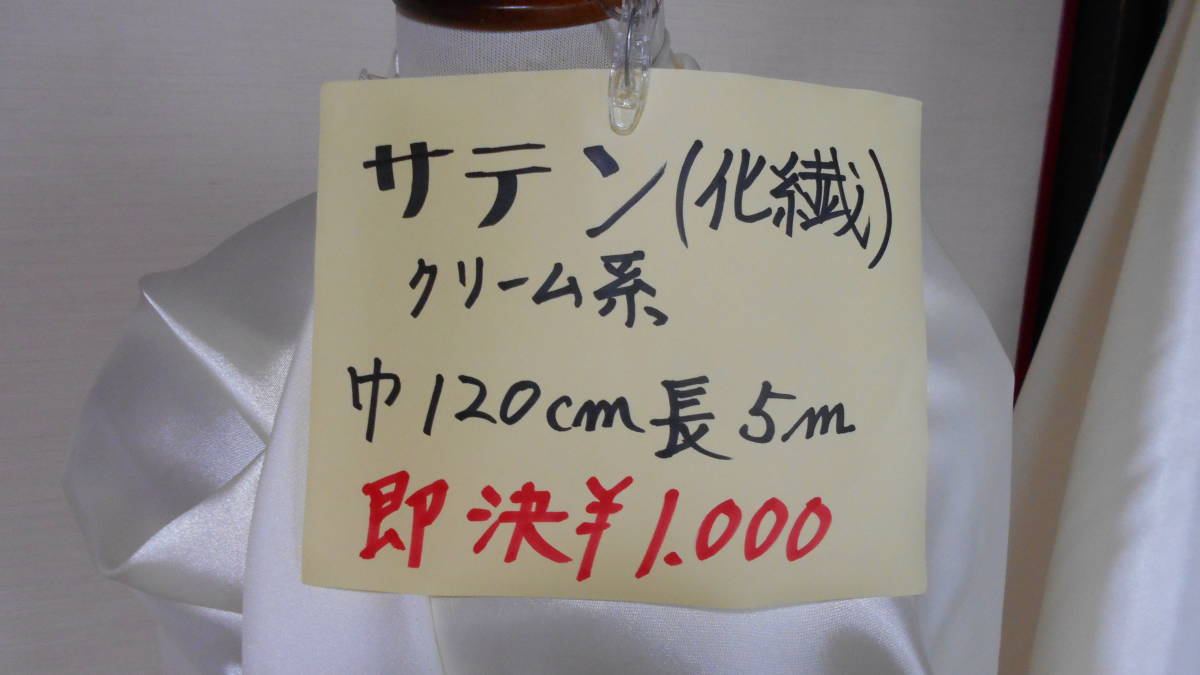 サテン(化繊)
クリーム系
巾120cm長5m
即決¥1.000